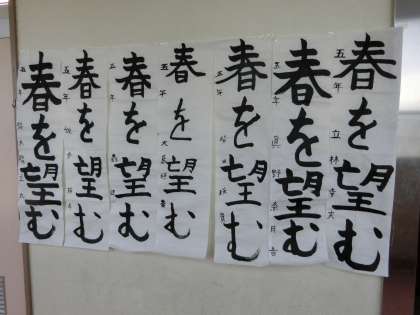 春を望む
五年 立林幸実
春を望む
五年 眞野奈月
春を望む
五年
春を望む
五年
春を望む
五年
春を望む
五年
春を望む
五年